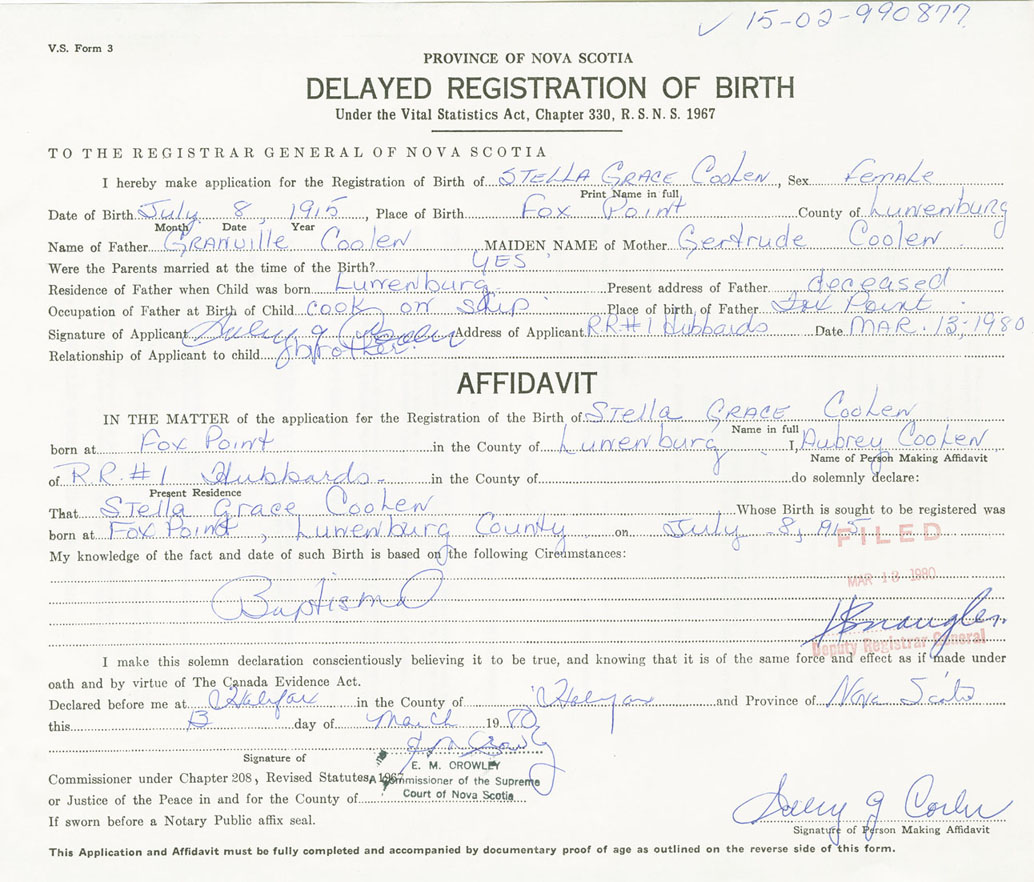 ✓ 15-02-990877
V.S. Form 3
PROVINCE OF NOVA SCOTIA
DELAYED REGISTRATION OF BIRTH
Under the Vital Statistics Act, Chapter 330, R. S. N. S. 1967
TO THE REGISTRAR GENERAL OF NOVA SCOTIA
I hereby make application for the Registration of Birth of STELLA GRACE Coolen, Sex Female
Print Name in full
Date of Birth July 8, 1915, Place of Birth Fox Point County of Lunenburg
Month Date Year
Name of Father GRANVILLE Coolen MAIDEN NAME of Mother Gertrude Coolen
Were the Parents married at the time of the Birth? YES
Residence of Father when Child was born Lunenburg Present address of Father deceased
Occupation of Father at Birth of Child cook on ship Place of birth of Father Fox Point
Signature of Applicant Address of Applicant RR#1 Hubbards Date MAR. 13, 1980
Relationship of Applicant to child brother.
AFFIDAVIT
IN THE MATTER of the application for the Registration of the Birth of Stella GRACE Coolen
Name in full
born at Fox Point in the County of Lunenburg I, Aubrey Coolen
Name of Person Making Affidavit
of R.R.#1 Hubbards in the County of do solemnly declare:
Present Residence
That Stella Grace Coolen Whose Birth is sought to be registered was
born at Fox Point, Lunenburg County on July 8, 1915
FILED
My knowledge of the fact and date of such Birth is based on the following Circumstances:
MAR 13 1980
Baptismal
Deputy Registrar General
I make this solemn declaration conscientiously believing it to be true, and knowing that it is of the same force and effect as if made under
oath and by virtue of The Canada Evidence Act.
Declared before me at Halifax in the County of Halifax and Province of Nova Scotia
this 13 day of March 1980
Signature of
E. M. CROWLEY
Commissioner under Chapter 208, Revised Statutes, 1967
A Commissioner of the Supreme
or Justice of the Peace in and for the County of
Court of Nova Scotia
If sworn before a Notary Public affix seal.
Signature of Person Making Affidavit
This Application and Affidavit must be fully completed and accompanied by documentary proof of age as outlined on the reverse side of this form.